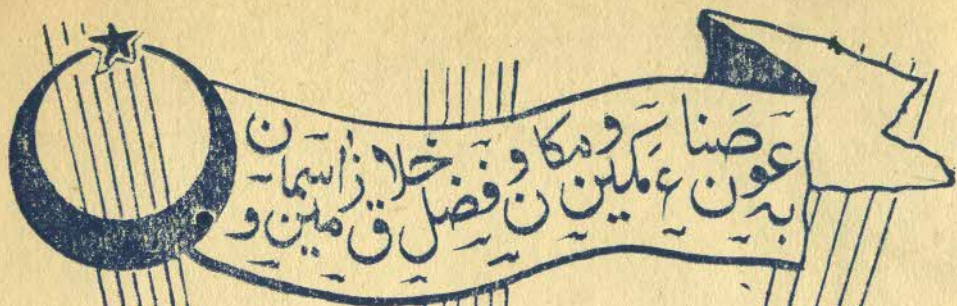 بہ عون صناع مکین و مکان و فضل خلاق زمین و آسمان